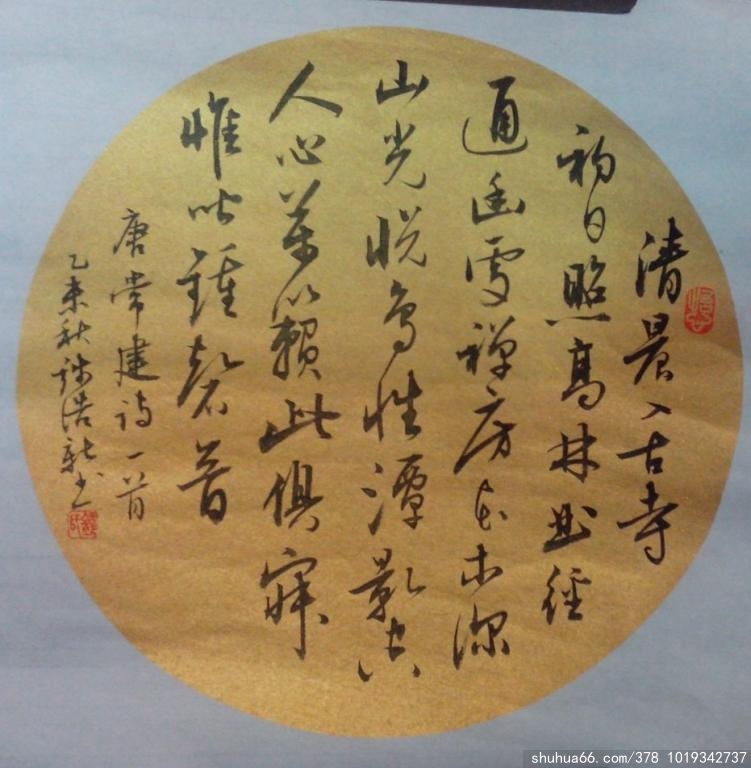 清晨入古寺
初日照高林曲徑
通幽處禪房花木深
山光悦鳥性潭影空
人心萬籟此俱寂
惟鐘磬音
唐常建詩一首
乙未秋浩書
shuhua66.com/378 1019342737